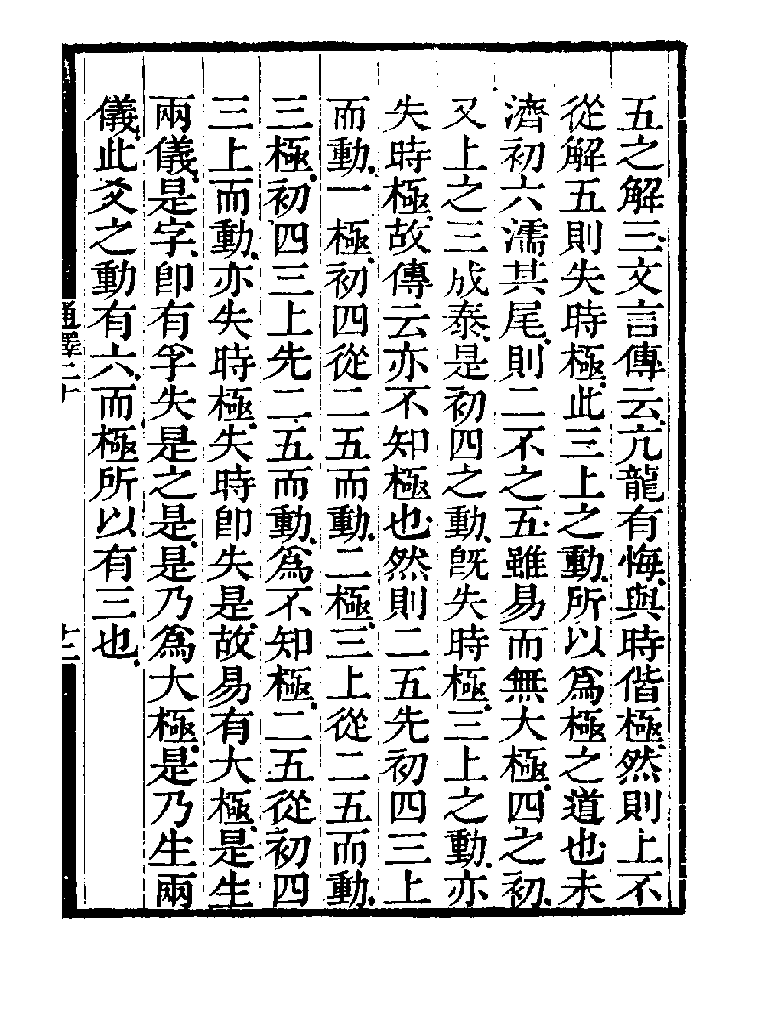 五之解三文言傳云亢龍有悔與時偕極然則上不
從解五則失時極此三上之動所以爲極之道也未
濟初六濡其尾則二不之五雖易而無大極四之初
又上之三成泰是初四之動旣失時極三上之動亦
失時極故傳云亦不知極也然則二五先初四三上
而動一極初四從二五而動二極三上從二五而動
三極初四三上先二五而動爲不知極二五從初四
三上而動亦失時極失時卽失是故易有大極是生
兩儀是字卽有孚失是之是是乃爲大極是乃生兩
儀此爻之動有六而極所以有三也
通釋二十
十二